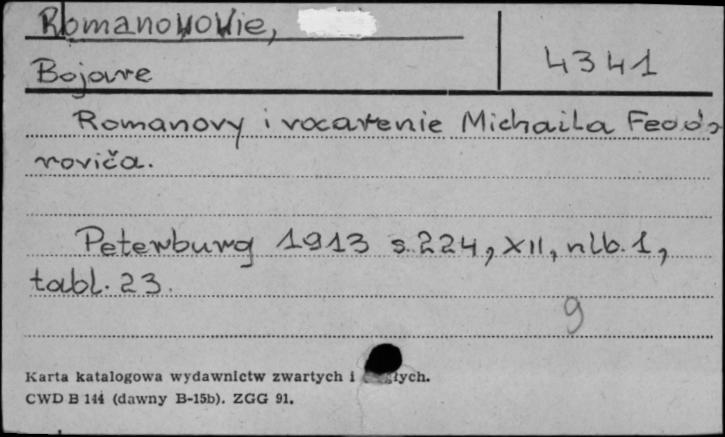 Romanowowie,
Bojare
4341
Romanovy i vocarenie Michaila Feodo
roviča.
Peterburg 1913 s. 224, XII, nlb. 1,
tabl. 23.
9
Karta katalogowa wydawnictw zwartych i łych.
CWD B 144 (dawny B-15b). ZGG 91.